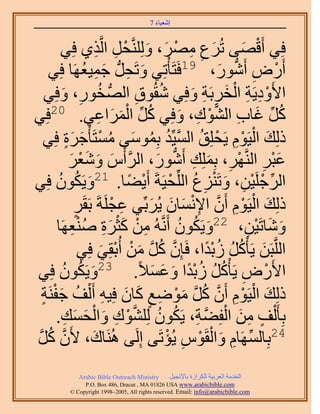 إشعياء 7
فِي أَقْصَى تُرَعِ مِصْرَ، وَلِلنَّحْلِ الَّذِي فِي
أَرْضِ أَشُّورَ، 19فَتَأْتِي وَتَحِلُّ جَمِيعُهَا فِي
الأَوْدِيَةِ الْخَرِبَةِ وَفِي شُقُوقِ الصُّخُورِ، وَفِي
كُلِّ غَابِ الشَّوْكِ، وَفِي كُلِّ الْمَرَاعِي. 20فِي
ذلِكَ الْيَوْمِ يَحْلِقُ السَّيِّدُ بِمُوسَى مُسْتَأْجَرَةٍ فِي
عَبْرِ النَّهْرِ، بِمَلِكِ أَشُّورَ، الرَّأْسَ وَشَعْرَ
الرِّجْلَيْنِ، وَتَنْزِعُ اللِّحْيَةَ أَيْضًا. 21وَيَكُونُ فِي
ذلِكَ الْيَوْمِ أَنَّ الإِنْسَانَ يُرَبِّي عِجْلَةَ بَقَرٍ
وَشَاتَيْنِ، 22وَيَكُونُ أَنَّهُ مِنْ كَثْرَةِ صُنْعِهَا
اللَّبَنَ يَأْكُلُ زُبْدًا، فَإِنَّ كُلَّ مَنْ أُبْقِيَ فِي
الأَرْضِ يَأْكُلُ زُبْدًا وَعَسَلاً. 23وَيَكُونُ فِي
ذلِكَ الْيَوْمِ أَنَّ كُلَّ مَوْضِعٍ كَانَ فِيهِ أَلْفُ جَفْنَةٍ
بِأَلْفٍ مِنَ الْفِضَّةِ، يَكُونُ لِلشَّوْكِ وَالْحَسَكِ.
24بِالسِّهَامِ وَالْقَوْسِ يُؤْتَى إِلَى هُنَاكَ، لأَنَّ كُلَّ
Arabic Bible Outreach Ministry الخدمة العربية للكرازة بالإنجيل
P.O. Box 486, Dracut , MA 01826 USA www.arabicbible.com
© Copyright 1998-2005, All rights reserved. Email: info@arabicbible.com